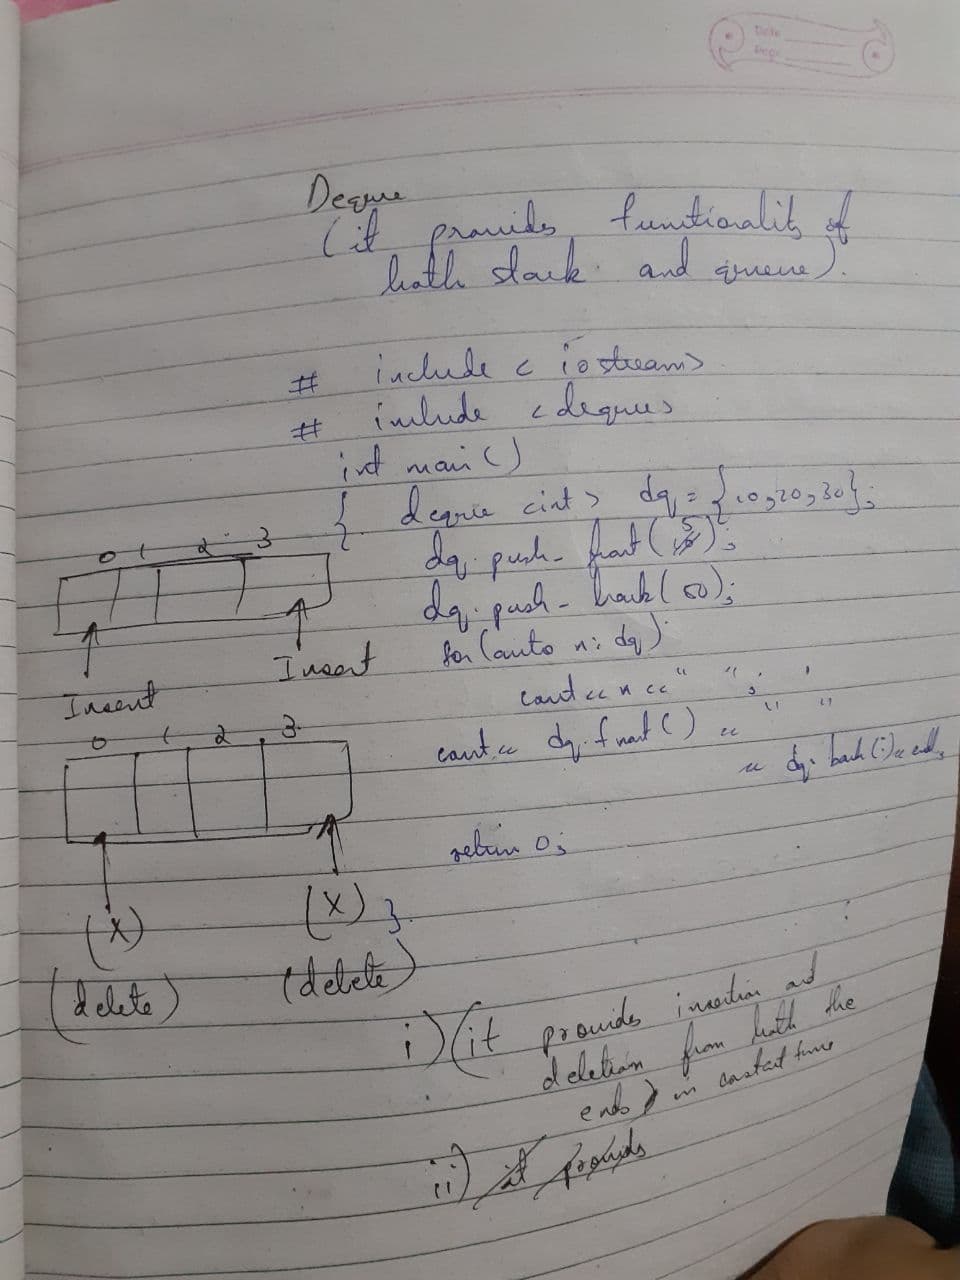 Date
Page
Deque
(it provides functionality of
both stack and queue).
# include < iostream>
# include <deque>
int main()
{ deque <int> dq = {10,20,30};
dq. push_ front(5);
dq. push_ back(50);
for (auto n: dq)
cout << n << " ";
cout << dq. front() << " "
<< dq. back() << endl;
return 0;
}
0 1 2 3
Insert Insert
0 1 2 3
(X) (X)
(delete) (delete)
i) (it provides insertion and
deletion from both the
ends) in constant time
ii) it provids